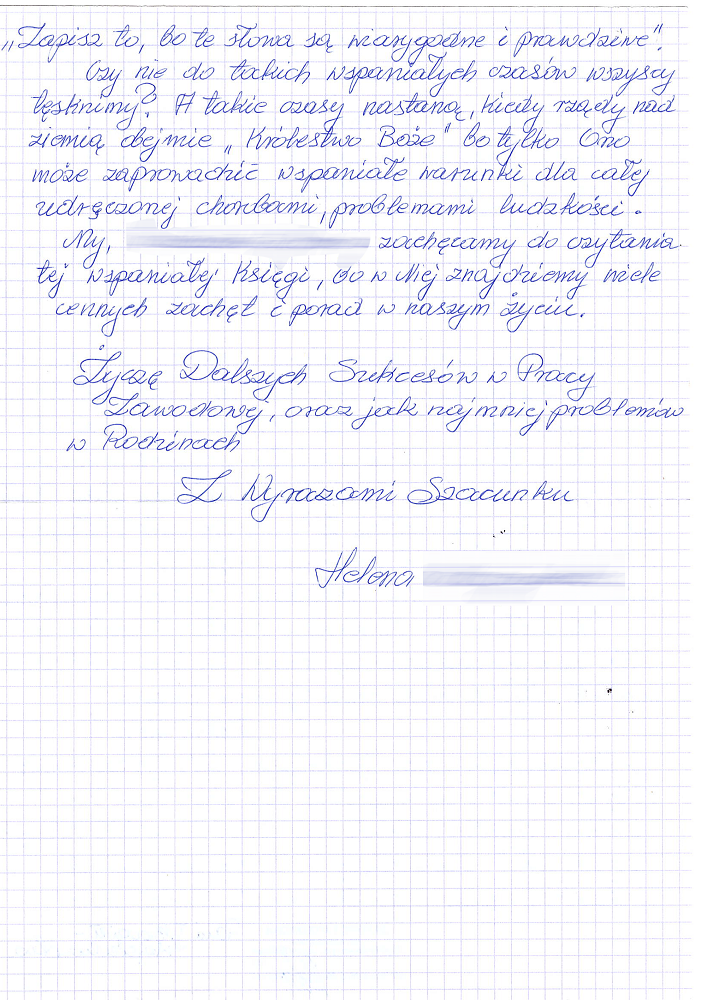 „Zapisz to, bo te słowa są wiarygodne i prawdziwe".
Czy nie do takich wspaniałych czasów wszyscy
tęsknimy? A takie czasy nastaną, kiedy rządy nad
ziemią obejmie „Królestwo Boże" bo tylko Ono
może zaprowadzić wspaniałe warunki dla całej
udręczonej chorobami, problemami ludzkości.
My, zachęcamy do czytania
tej wspaniałej Księgi, bo w Niej znajdziemy wiele
cennych zachęt i porad w naszym Życiu.
Życzę Dalszych Sukcesów w Pracy
Zawodowej, oraz jak najmniej problemów
w Rodzinach
Z Wyrazami Szacunku
Helena